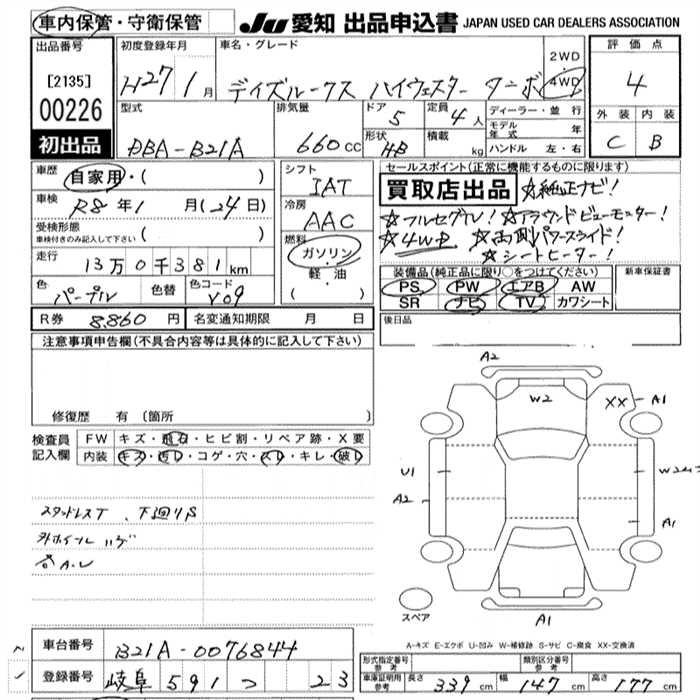 車内保管・守衛保管
JU 愛知 出品申込書 JAPAN USED CAR DEALERS ASSOCIATION
出品番号
[2135]
00226
初出品
初度登録年月
H27 1月
車名・グレード
デイズルークス ハイウェスター ターボ
2WD
4WD
評価点
4
外装 内装
C B
型式
DBA-B21A
排気量
660 CC
ドア
5
定員
4人
形状
HB
積載
kg
ディーラー・並行
モデル年式 年
ハンドル 左・右
車歴
自家用・( )
車検
R8年1月(24日)
受検形態
車検付きのみ記入して下さい
( )
走行
13万0千381km
色
パープル
色替
色コード
シフト
IAT
冷房
AAC
燃料
ガソリン
軽・油
( )
セールスポイント(正常に機能するものに限ります)
買取店出品 ☆純正ナビ!
☆フルセグTV! ☆アラウンドビューモニター!
☆4WD ☆両側パワースライド!
☆シートヒーター!
装備品(純正品に限り○をつけてください)
PS PW エアB AW
SR ナビ TV カワシート
新車保証書
後日品
R券 8,860円 名変通知期限 月 日
注意事項申告欄(不具合内容等は具体的に記入して下さい)
修復歴 有 〔箇所 〕
検査員記入欄
FW キズ・飛石・ヒビ割・リペア跡・X要
内装 キズ・汚レ・コゲ・穴・スレ・キレ・破レ
スタッドレスT、下廻りS
外ホイールハゲ
各A.U
A2
W2
XX
A1
U1
A2
A1
A1
スペア
A-キズ E-エクボ U-凹み W-補修跡 S-サビ C-腐食 XX-交換済
車台番号
B21A-0076844
登録番号
岐阜 591 つ 23
型式指定番号参考
類別区分番号参考
車庫証明用参考 長さ 339cm 幅 147cm 高さ 177cm